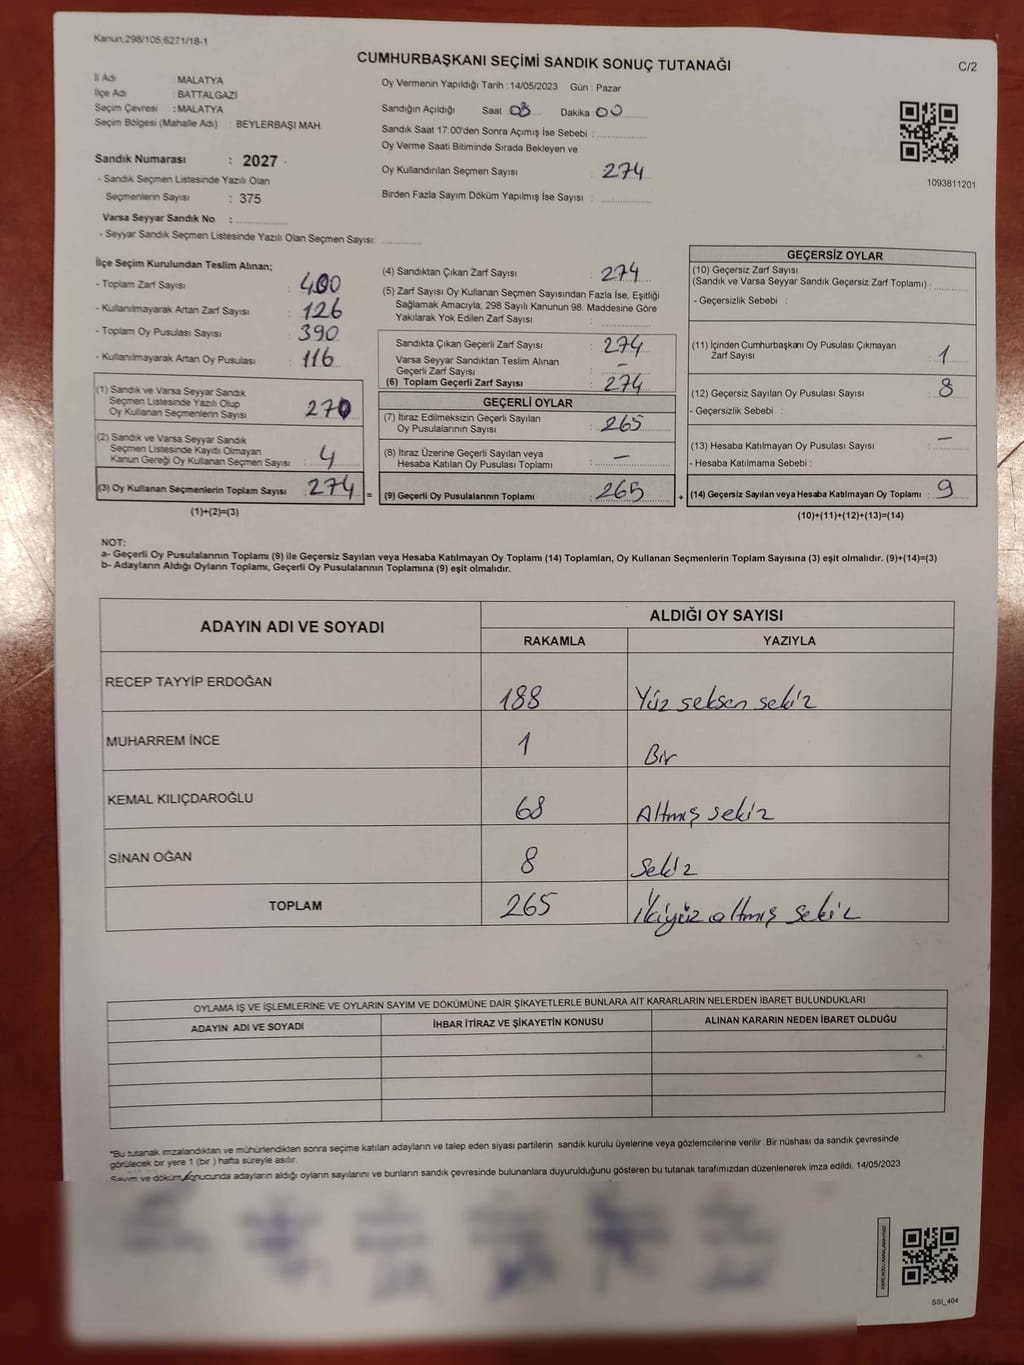 Kanun;298/105;6271/18-1
CUMHURBAŞKANI SEÇİMİ SANDIK SONUÇ TUTANAĞI
C/2
İl Adı : MALATYA
İlçe Adı : BATTALGAZİ
Seçim Çevresi : MALATYA
Seçim Bölgesi (Mahalle Adı) : BEYLERBAŞI MAH.
Sandık Numarası : 2027
- Sandık Seçmen Listesinde Yazılı Olan
Seçmenlerin Sayısı : 375
Varsa Seyyar Sandık No :
- Seyyar Sandık Seçmen Listesinde Yazılı Olan Seçmen Sayısı:
Oy Vermenin Yapıldığı Tarih : 14/05/2023 Gün : Pazar
Sandığın Açıldığı Saat 08 Dakika 00
Sandık Saat 17:00'den Sonra Açımış İse Sebebi :
Oy Verme Saati Bitiminde Sırada Bekleyen ve
Oy Kullandırılan Seçmen Sayısı : 274
Birden Fazla Sayım Döküm Yapılmış İse Sayısı :
1093811201
İlçe Seçim Kurulundan Teslim Alınan;
- Toplam Zarf Sayısı : 400
- Kullanılmayarak Artan Zarf Sayısı : 126
- Toplam Oy Pusulası Sayısı : 390
- Kullanılmayarak Artan Oy Pusulası : 116
(1) Sandık ve Varsa Seyyar Sandık
Seçmen Listesinde Yazılı Olup
Oy Kullanan Seçmenlerin Sayısı : 270
(2) Sandık ve Varsa Seyyar Sandık
Seçmen Listesinde Kayıtlı Olmayan
Kanun Gereği Oy Kullanan Seçmen Sayısı : 4
(3) Oy Kullanan Seçmenlerin Toplam Sayısı : 274
(1)+(2)=(3)
(4) Sandıktan Çıkan Zarf Sayısı : 274
(5) Zarf Sayısı Oy Kullanan Seçmen Sayısından Fazla İse, Eşitliği
Sağlamak Amacıyla, 298 Sayılı Kanunun 98. Maddesine Göre
Yakılarak Yok Edilen Zarf Sayısı :
Sandıkta Çıkan Geçerli Zarf Sayısı : 274
Varsa Seyyar Sandıktan Teslim Alınan
Geçerli Zarf Sayısı : –
(6) Toplam Geçerli Zarf Sayısı : 274
GEÇERLİ OYLAR
(7) İtiraz Edilmeksizin Geçerli Sayılan
Oy Pusulalarının Sayısı : 265
(8) İtiraz Üzerine Geçerli Sayılan veya
Hesaba Katılan Oy Pusulası Toplamı : –
= (9) Geçerli Oy Pusulalarının Toplamı : 265
GEÇERSİZ OYLAR
(10) Geçersiz Zarf Sayısı
(Sandık ve Varsa Seyyar Sandık Geçersiz Zarf Toplamı) :
- Geçersizlik Sebebi :
(11) İçinden Cumhurbaşkanı Oy Pusulası Çıkmayan
Zarf Sayısı : 1
(12) Geçersiz Sayılan Oy Pusulası Sayısı : 8
- Geçersizlik Sebebi :
(13) Hesaba Katılmayan Oy Pusulası Sayısı : –
- Hesaba Katılmama Sebebi :
+ (14) Geçersiz Sayılan veya Hesaba Katılmayan Oy Toplamı : 9
(10)+(11)+(12)+(13)=(14)
NOT:
a- Geçerli Oy Pusulalarının Toplamı (9) ile Geçersiz Sayılan veya Hesaba Katılmayan Oy Toplamı (14) Toplamları, Oy Kullanan Seçmenlerin Toplam Sayısına (3) eşit olmalıdır. (9)+(14)=(3)
b- Adayların Aldığı Oyların Toplamı, Geçerli Oy Pusulalarının Toplamına (9) eşit olmalıdır.
ADAYIN ADI VE SOYADI
ALDIĞI OY SAYISI
RAKAMLA YAZIYLA
RECEP TAYYİP ERDOĞAN 188 Yüz seksen sekiz
MUHARREM İNCE 1 Bir
KEMAL KILIÇDAROĞLU 68 Altmış sekiz
SİNAN OĞAN 8 Sekiz
TOPLAM 265 İkiyüz altmış sekiz
OYLAMA İŞ VE İŞLEMLERİNE VE OYLARIN SAYIM VE DÖKÜMÜNE DAİR ŞİKAYETLERLE BUNLARA AİT KARARLARIN NELERDEN İBARET BULUNDUKLARI
ADAYIN ADI VE SOYADI İHBAR İTİRAZ VE ŞİKAYETİN KONUSU ALINAN KARARIN NEDEN İBARET OLDUĞU
*Bu tutanak imzalandıktan ve mühürlendikten sonra seçime katılan adayların ve talep eden siyasi partilerin sandık kurulu üyelerine veya gözlemcilerine verilir. Bir nüshası da sandık çevresinde
görülecek bir yere 1 (bir) hafta süreyle asılır.
Sayım ve döküm sonucunda adayların aldığı oyların sayılarını ve bunların sandık çevresinde bulunanlara duyurulduğunu gösteren bu tutanak tarafımızdan düzenlenerek imza edildi. 14/05/2023
SSİ_404